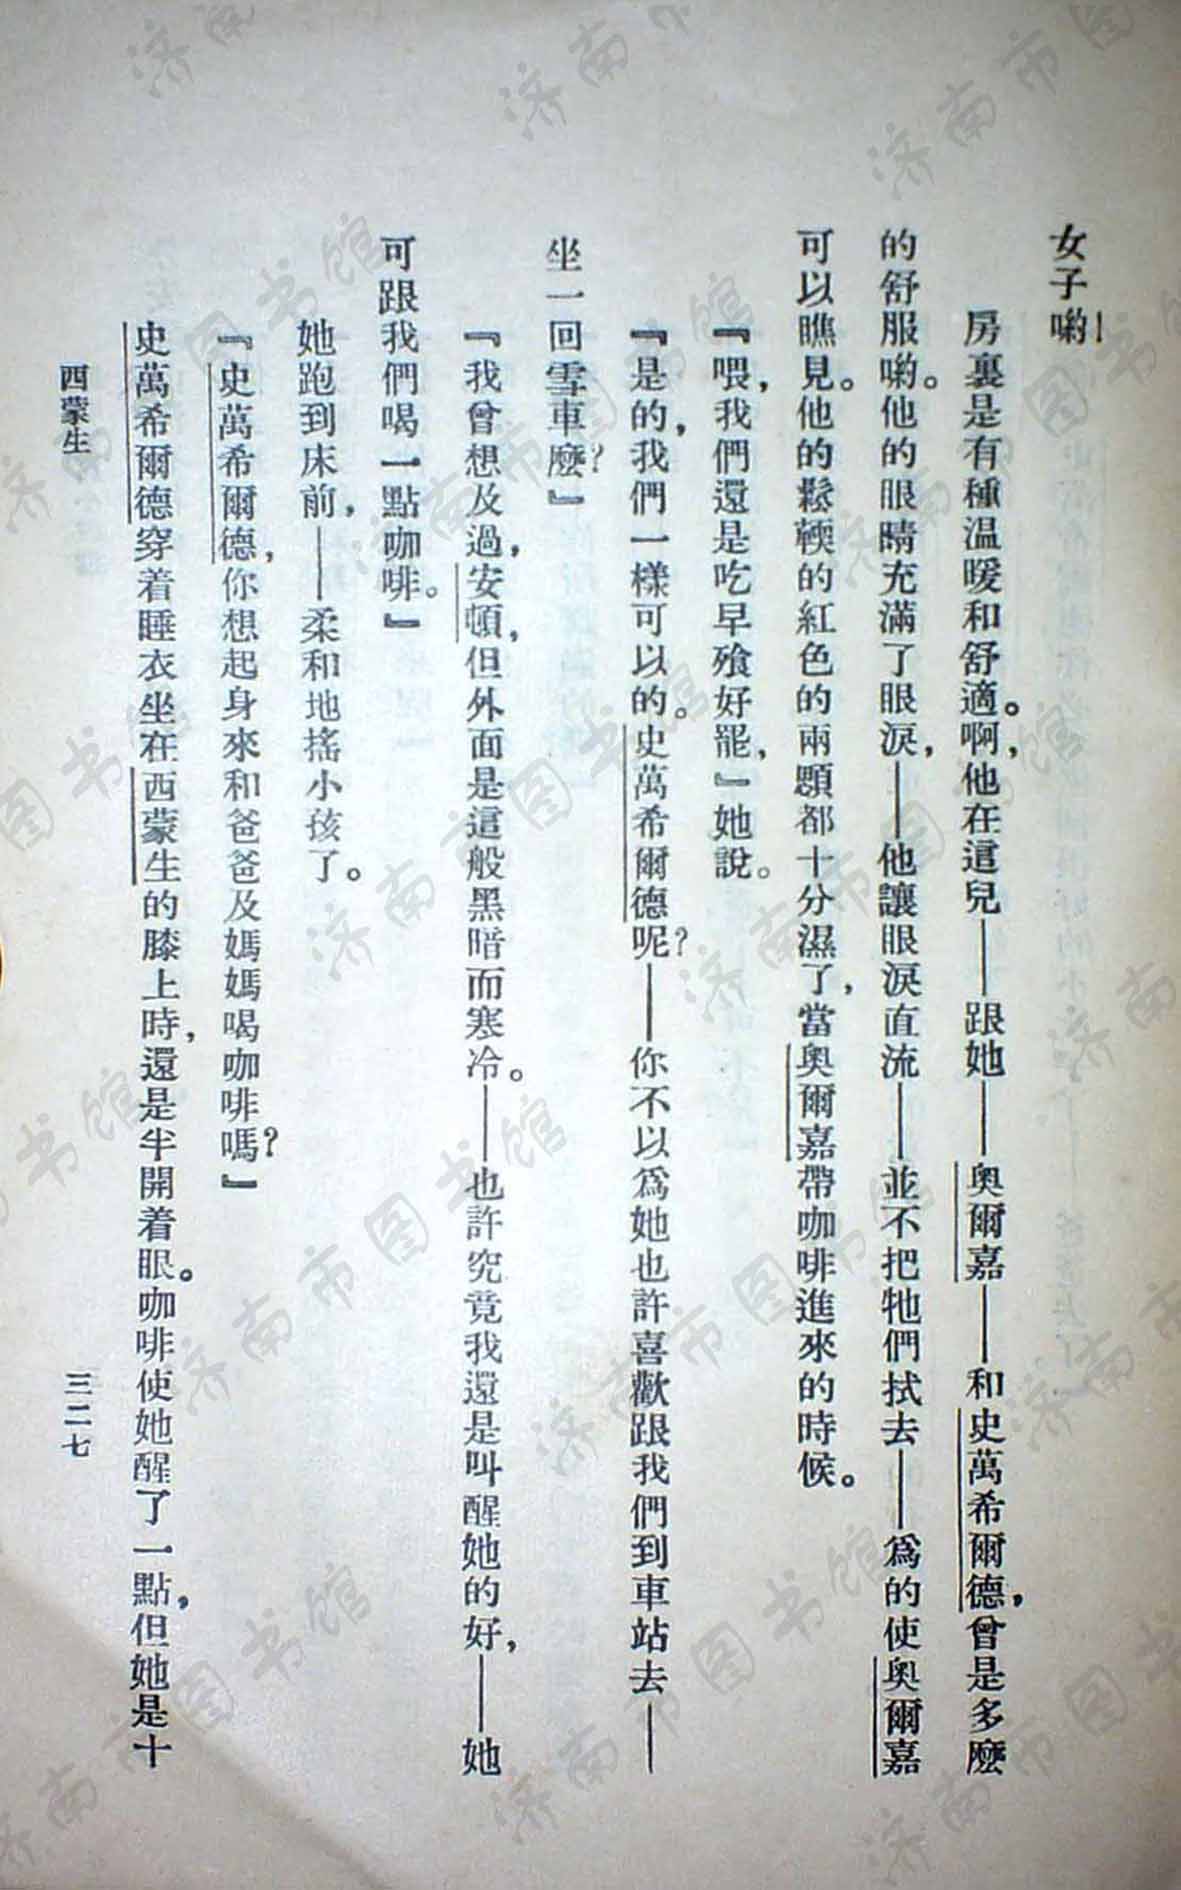 女子喲!
房裏是有種温暖和舒適。啊,他在這兒——跟她——奥爾嘉——和史萬希爾德,曾是多麽
的舒服喲。他的眼睛充滿了眼淚,——他讓眼淚直流——並不把牠們拭去——爲的使奥爾嘉
可以瞧見。他的鬆輭的紅色的兩顋都十分濕了,當奥爾嘉帶咖啡進來的時候。
『喂,我們還是吃早飧好罷,』她說。
『是的,我們一樣可以的。史萬希爾德呢?——你不以爲她也許喜歡跟我們到車站去——
坐一回雪車麽?』
『我曾想及過,安頓,但外面是這般黑暗而寒冷。——也許究竟我還是叫醒她的好,——她
可跟我們喝一點咖啡。』
她跑到床前,——柔和地搖小孩了。
『史萬希爾德,你想起身來和爸爸及媽媽喝咖啡嗎?』
史萬希爾德穿着睡衣坐在西蒙生的膝上時,還是半開着眼。咖啡使她醒了一點,但她是十
西蒙生
三二七
济南市图书馆